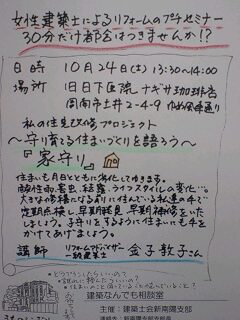 女性建築士によるリフォームのプチセミナー
30分だけ都合つきませんか!?
日時 10月24日(土) 13:30～14:00
場所 旧日下医院 ナギサ珈琲店
周南市土井2-4-9 ゆめ風車通り
私の住宅改修プロジェクト
～守り育てる住まいづくりを語ろう～
『家守り』
住まいも月日とともに劣化してゆきます。
耐震性能・腐虫・結露・ライフスタイルの変化…
大きな修繕になる前に住んでいる私達の手で
定期点検し、早期発見、早期補修をしま
しょう。子育てをするように住まいにも手を
かけてあげましょう。
講師 リフォームアドバイザー
一級建築士 金子敦子さん
建築なんでも相談室
主催：建築士会新南陽支部